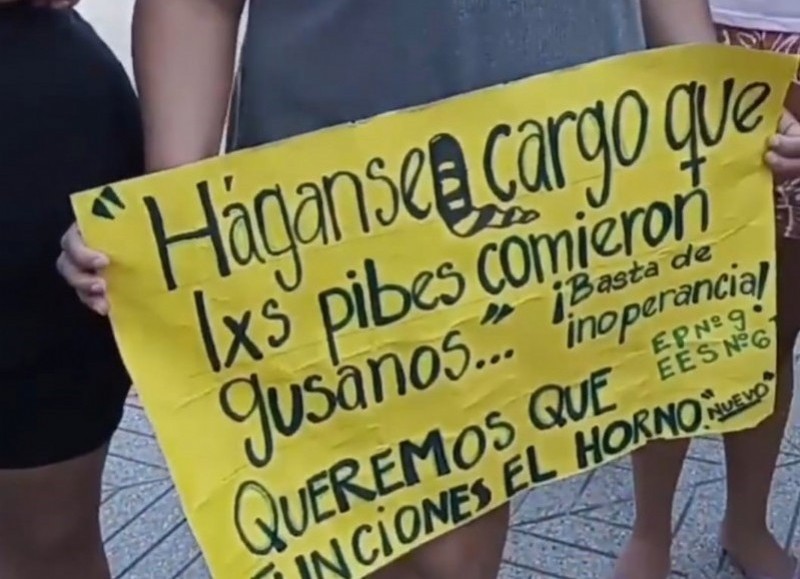 "Háganse cargo que
lxs pibes comieron
gusanos..."
¡Basta de
inoperancia!
EP Nº 9
EES Nº 6
QUEREMOS QUE
FUNCIONES EL HORNO. "NUEVO"